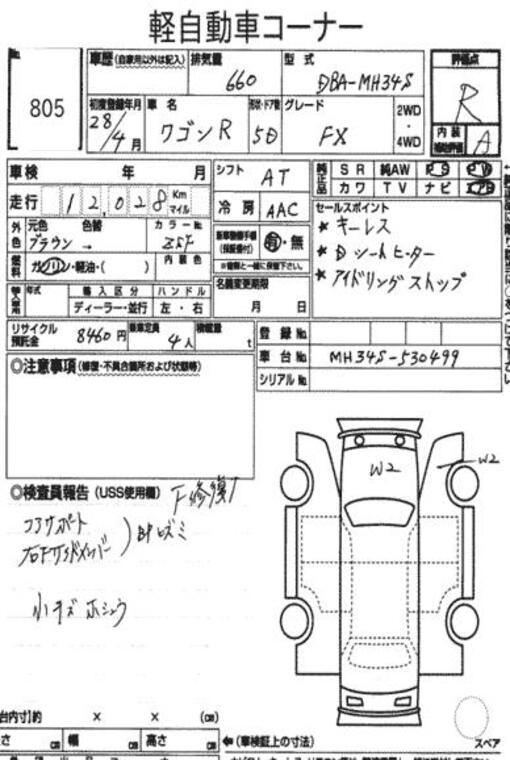 軽自動車コーナー
No. 805
車歴(自家用以外は記入)
排気量 660
型式 DBA-MH34S
評価点 R
内装補助評価 A
初度登録年月 28年 4月
車名 ワゴンR
形状・ドア数 5D
グレード FX
2WD・4WD
車検 年 月
シフト AT
純正品 SR 純AW PS PW
カワ TV ナビ エアB
走行 12,028 Km マイル
冷房 AAC
セールスポイント
★ キーレス
★ Dシートヒーター
★ アイドリングストップ
外色 元色 色替 カラーNo.
ブラウン →
新車整備手帳(保証書付) 有・無
※書類と一緒に保管下さい。
燃料 ガソリン・軽油・( ) 内装色
名義変更期限 月 日
輸入車用 年式 輸入区分 ハンドル
ディーラー・並行 左・右
リサイクル預託金 8460円
乗車定員 4人
積載量 t
登録No.
車台No. MH34S-530499
シリアルNo.
◎注意事項(修復・不具合箇所および状態等)
◎検査員報告(USS使用欄) F修復
コアサポート
右Fサイドメンバー
小キズ ホシュウ
W2
W2
台内寸)約 × × (cm)
さ cm 幅 cm 高さ cm ←(車検証上の寸法)
スペア